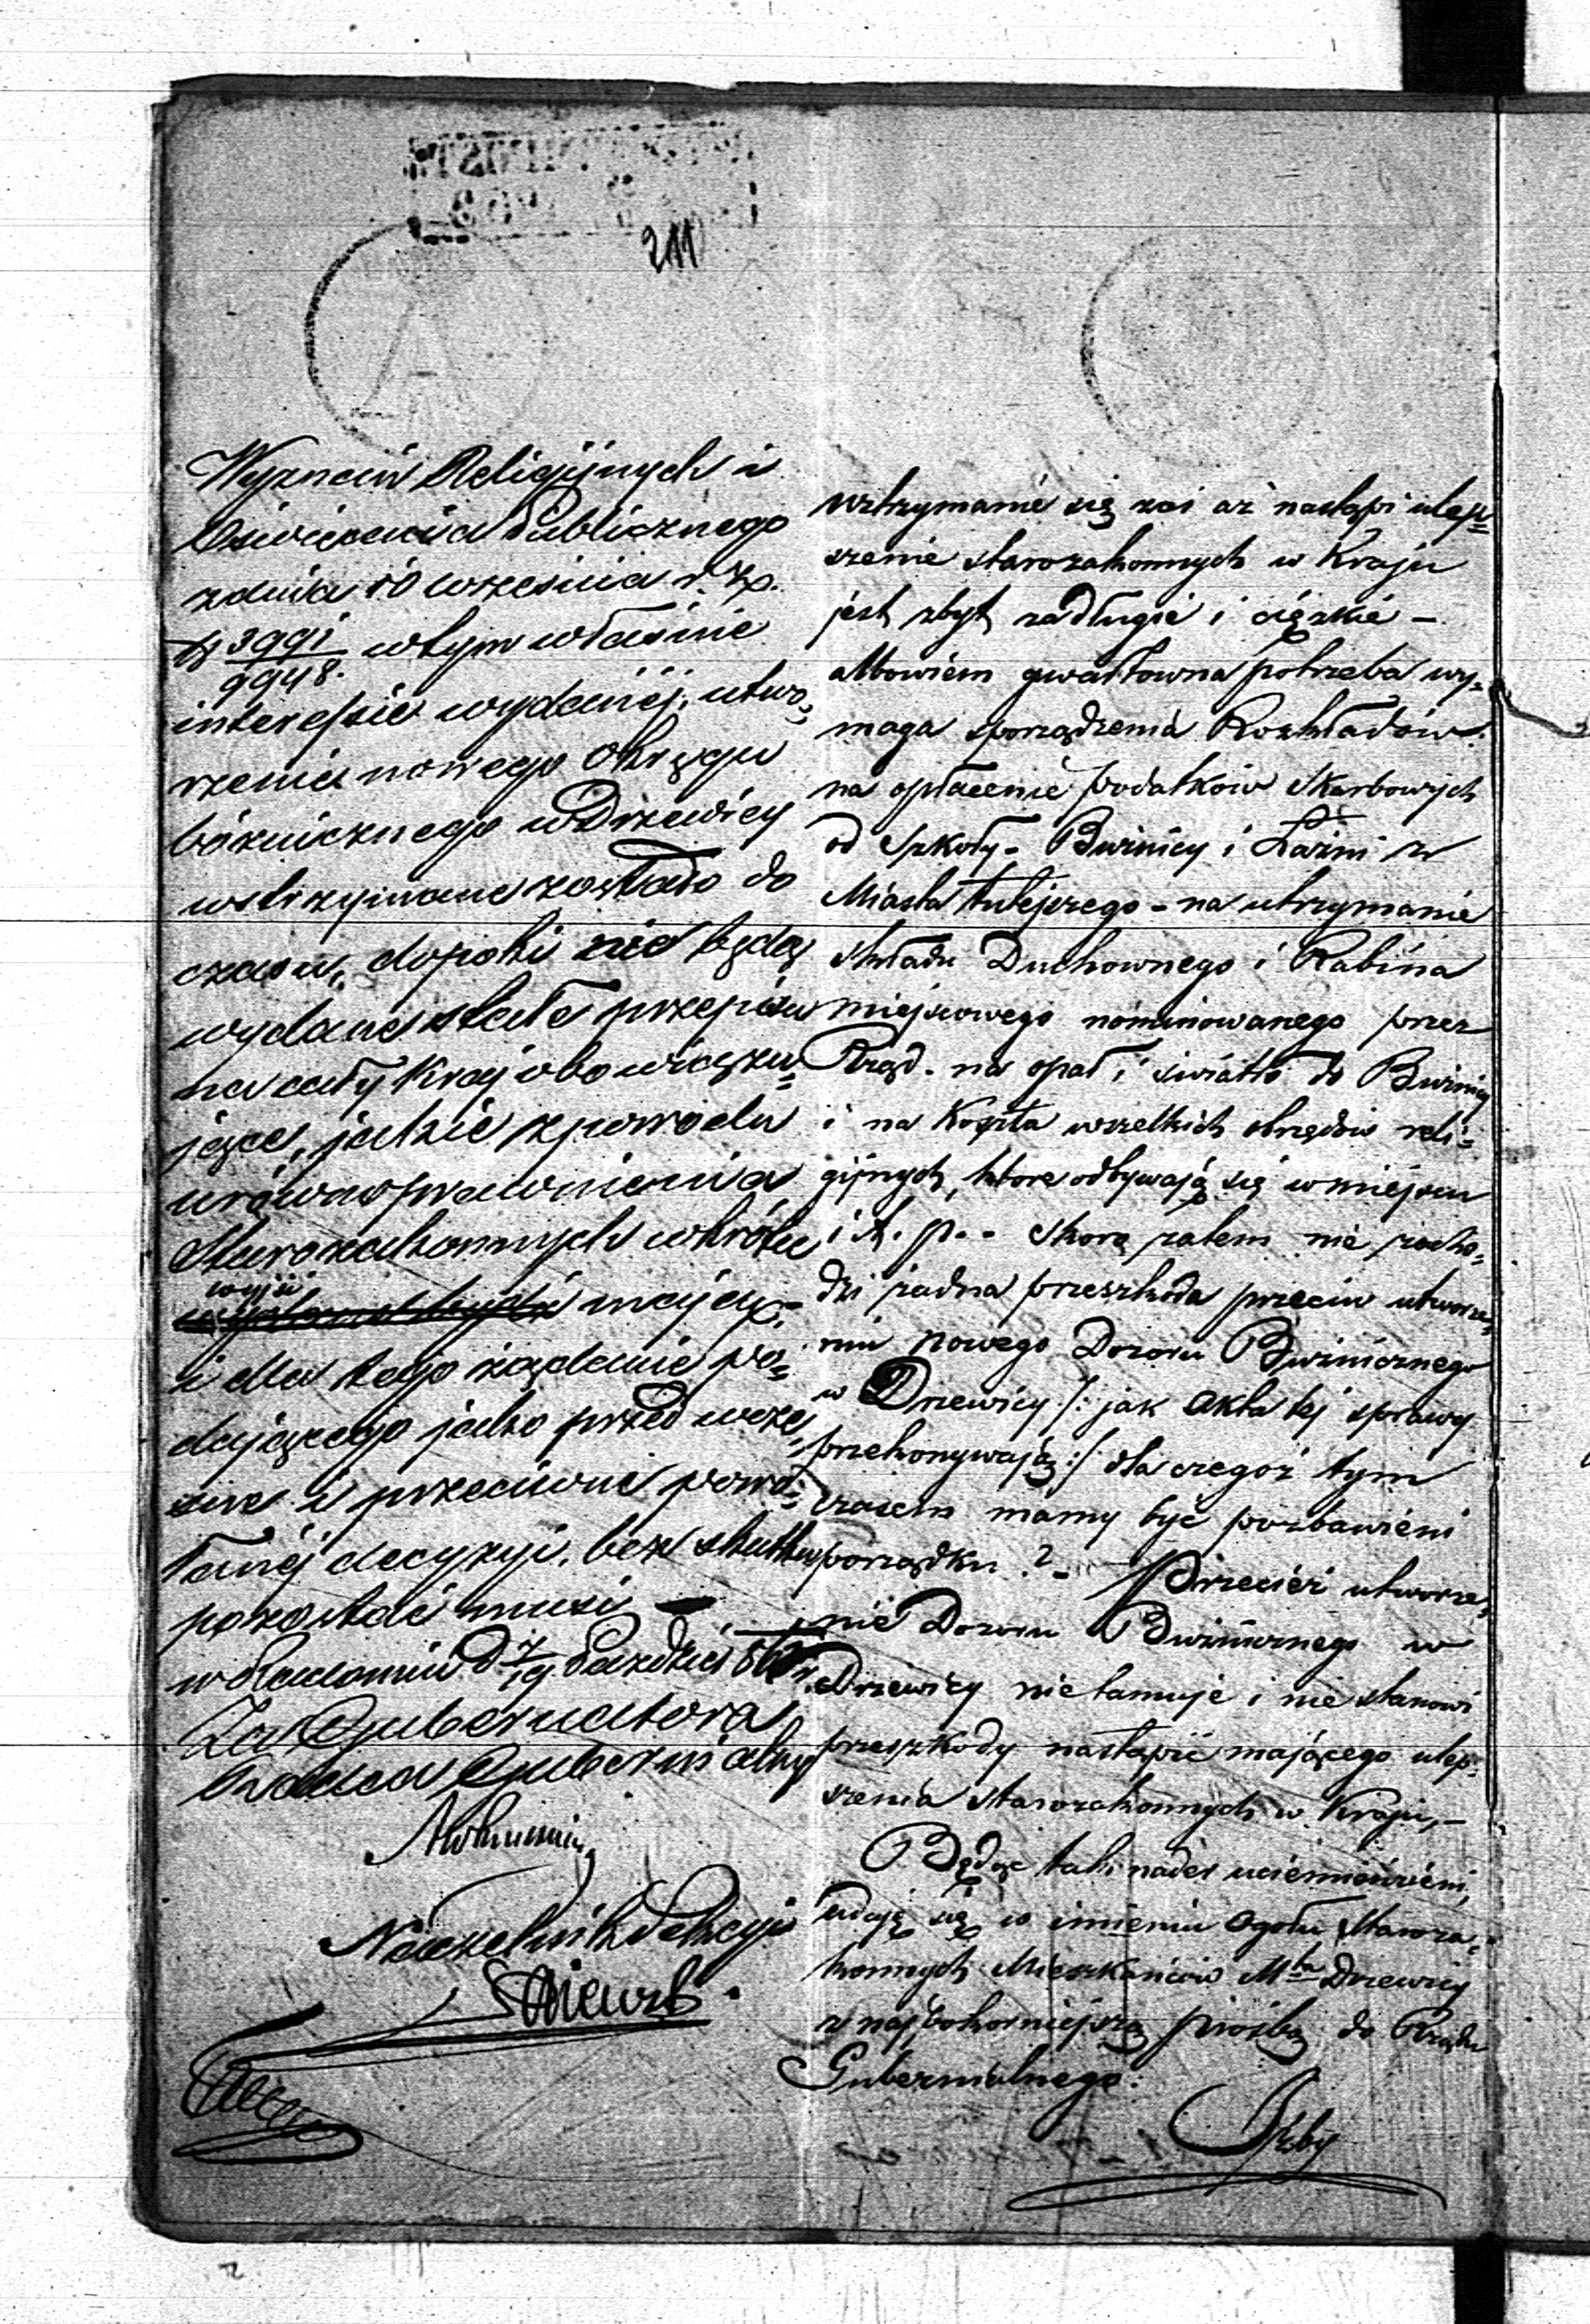 211
Wyznań Religijnych i
Oświecenia Publicznego
z dnia 10 września r. z.
N 3991/9948. w tym właśnie
interessie wydanéj, utwo-
rzenie nowego Okręgu
bóżnicznego w Drzewicy
wstrzymane zostało do
czasu, dopóki nie będą
wydane stałe przepisy
na cały Kraj obowiązu-
jące, jakie z powodu
urównoprawnienia
Starozakonnych wkrótce
wyjść
mają,
i dla tego żądanie po-
dającego jako przedwcze-
sne i przeciwne powo-
łanéj decyzyi, bez skutku
pozostać musi
w Radomiu d 7/19 Paździer 862 r.
Za Gubernatora
Radca Gubernialny
Naczelnik Sekcyi
wstrzymanie się zaś aż nastąpi ulep-
szenie starozakonnych w Kraju
jest zbyt zadługie i ciężkie -
albowiem gwałtowna potrzeba wy-
maga sporządzenia Rozkładów
na opłacenie podatków Skarbowych
od Szkoły - Bużnicy i Łaźni z
Miasta tutejszego - na utrzymanie
składu Duchownego i Rabina
miejscowego nominowanego przez
Rząd. na opał i światło do Bużnicy
i na Koszta wszelkich obrzędów reli-
gijnych, które odbywają się w miejscu
i t. p. - Skoro zatem nie zacho-
dzi żadna przeszkoda przeciw utworze-
niu nowego Dozoru Bużnicznego
w Drzewicy /: jak Akta tej sprawy
przekonywają :/ dla czegoż tym
czasem mamy być pozbawieni
porządku ? - Przecież utworze-
nie Dozoru Bużnicznego w
Drzewicy nie tamuje i nie stanowi
przeszkody nastąpić mającego ulep-
szenia starozakonnych w Kraju, -
Będąc tak nader uciemiężeni,
udaję się w imieniu Ogółu Staroza-
konnych Mieszkańców Mta Drzewicy
z najpokorniejszą prośbą do Rządu
Gubernialnego.
Ażeby